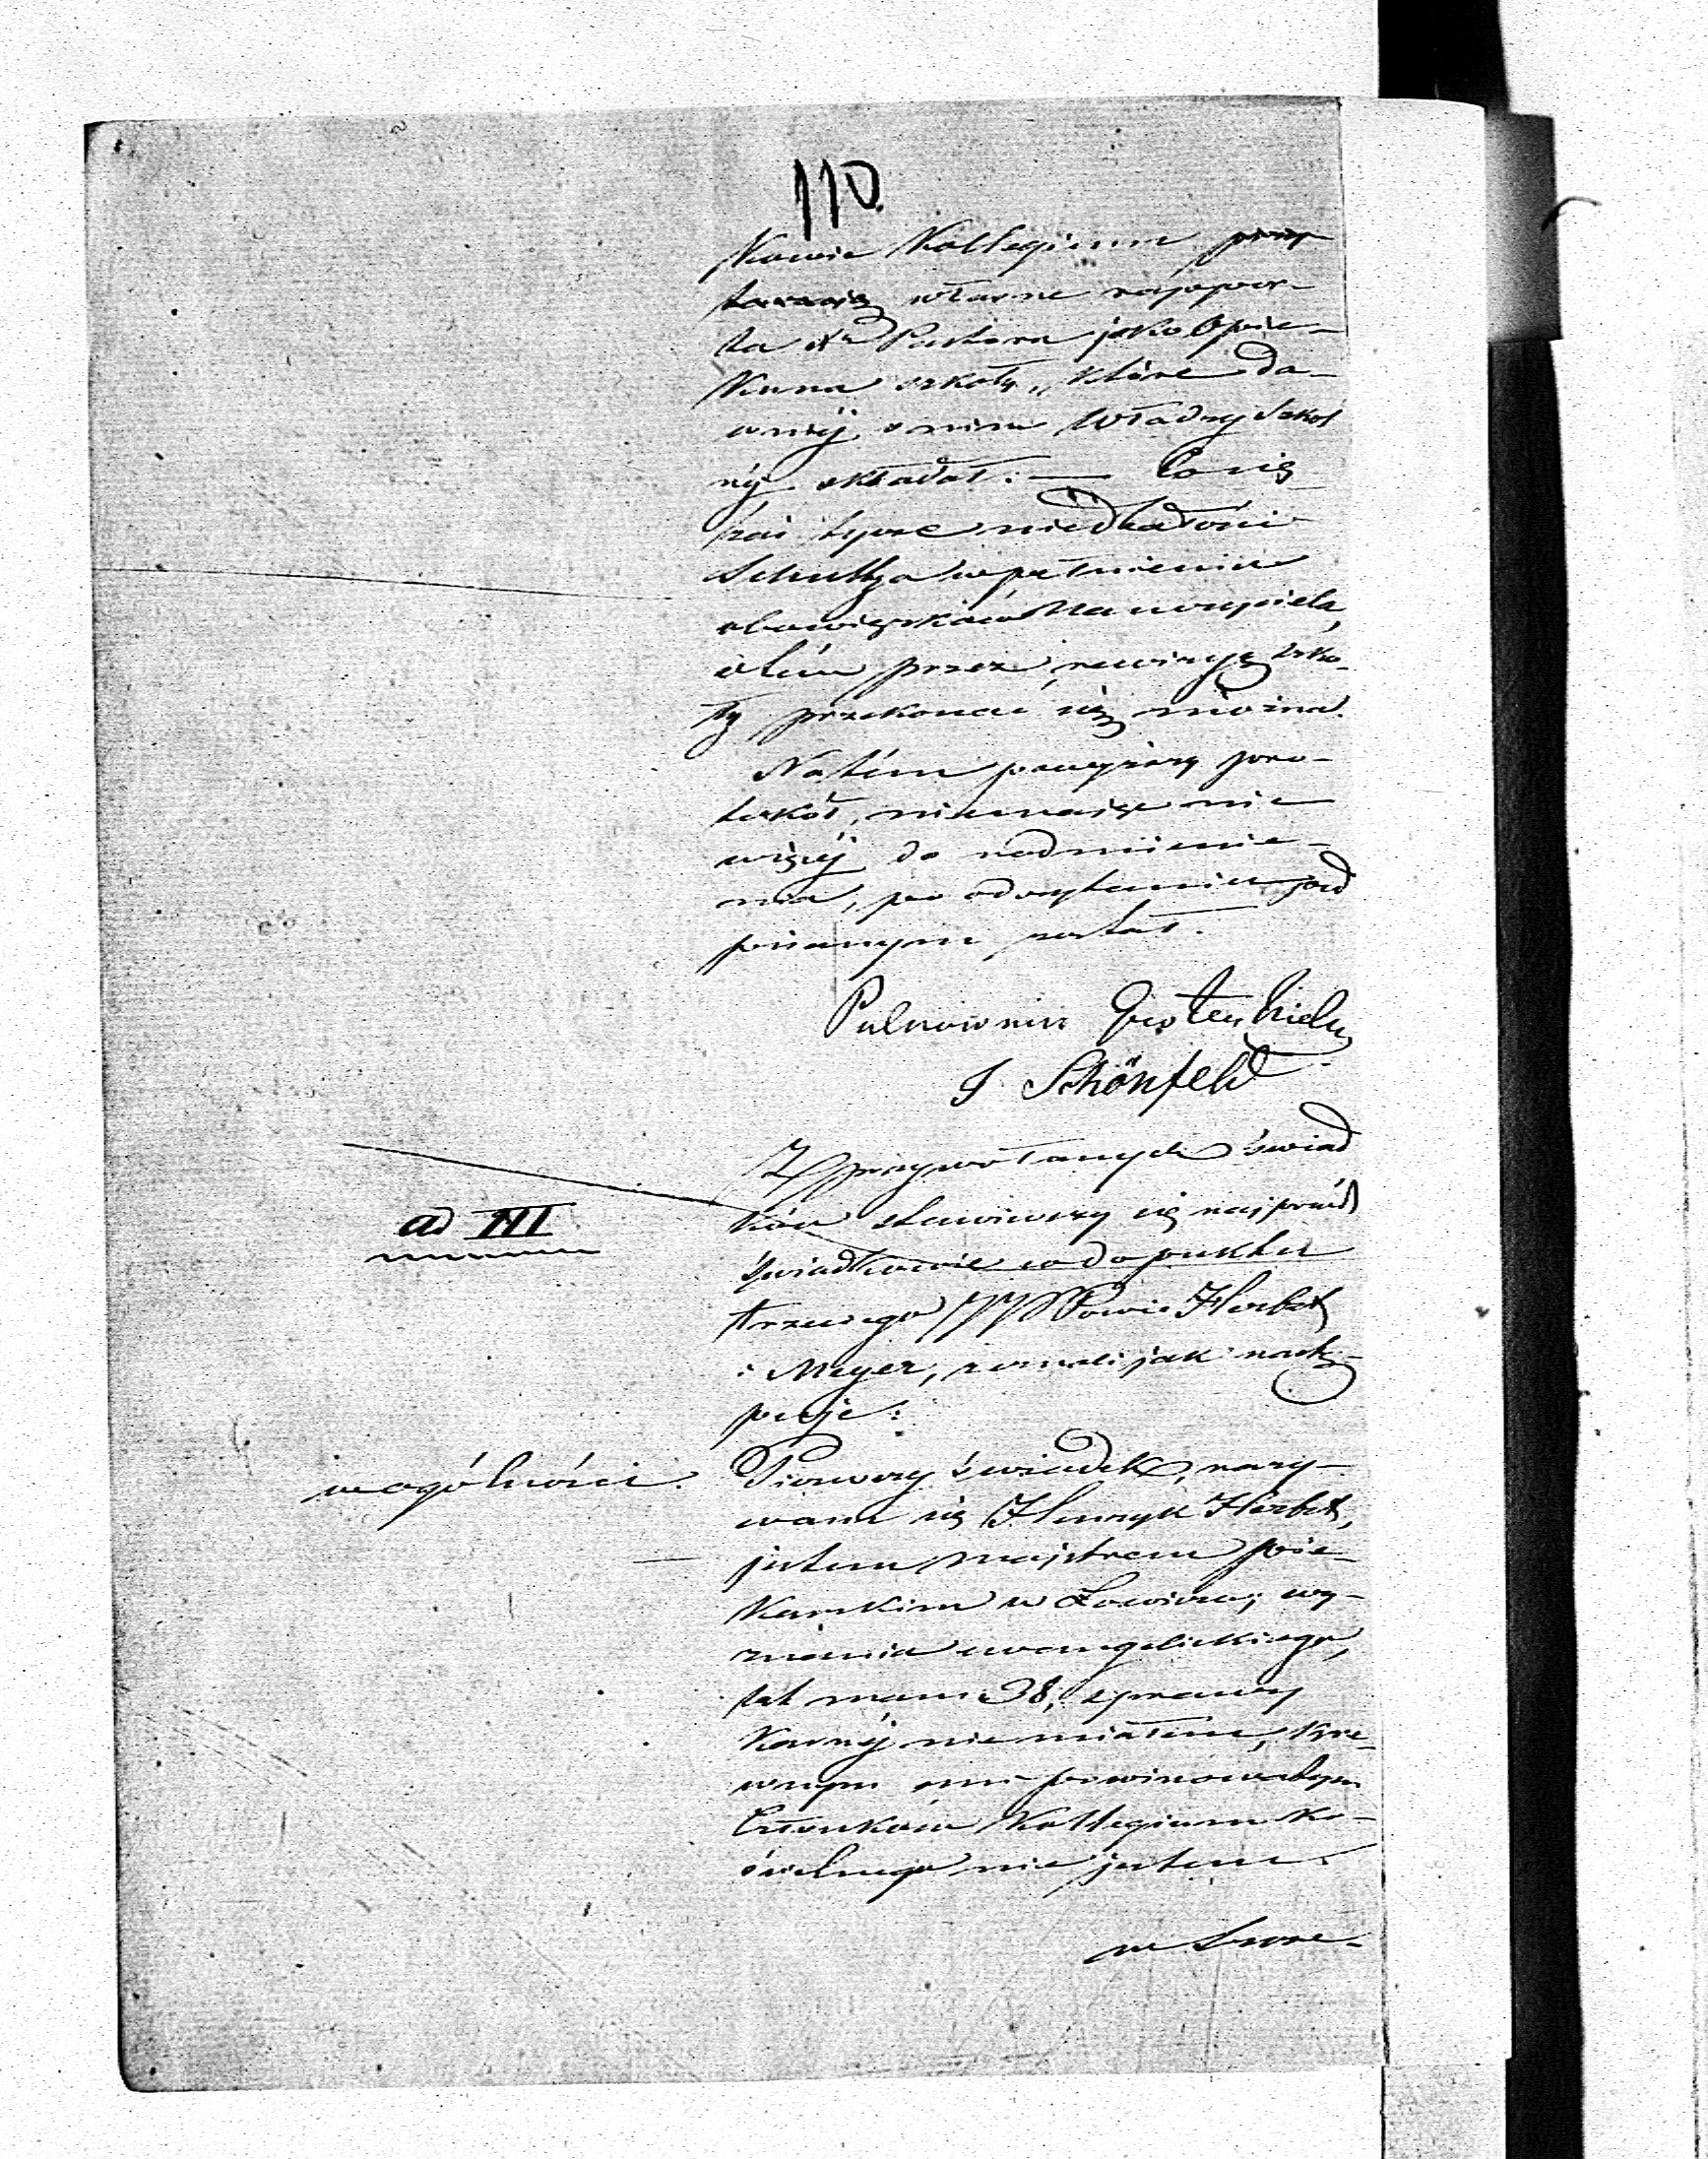 110.
kowie Kollegium przy
taczają własne rapor-
ta Xa Pastora jako Opie-
kuna szkoły, które da-
wniéj o nim Władzy szkol
néj składał: — Co się
zaś tycze niedbałości
Schultza w pełnieniu
obowiązków Nauczyciela,
o tém przez rewizyę szko-
ły przekonać się można.
Na tém powyższy pro-
tokół, niemając nic
więcéj do nadmienie-
nia, po odczytaniu pod
pisanym został.
J Schönfeld
Z przywołanych świad
ków stawiwszy się najprzód
ad III
świadkowie co do punktu
trzeciego WW Panowie Herbst
i Meyer, zeznali jak nastę-
puje:
w ogólności.
Pierwszy świadek, nazy-
wam się Henryk Herbst,
jestem majstrem pie-
karskim w Łowiczu, wy-
znania ewangelickiego,
lat mam 38, sprawy
karnéj nie miałem, kre-
wnym ani powinowatym
Członków Kollegium Ko-
ścielnego nie jestem.